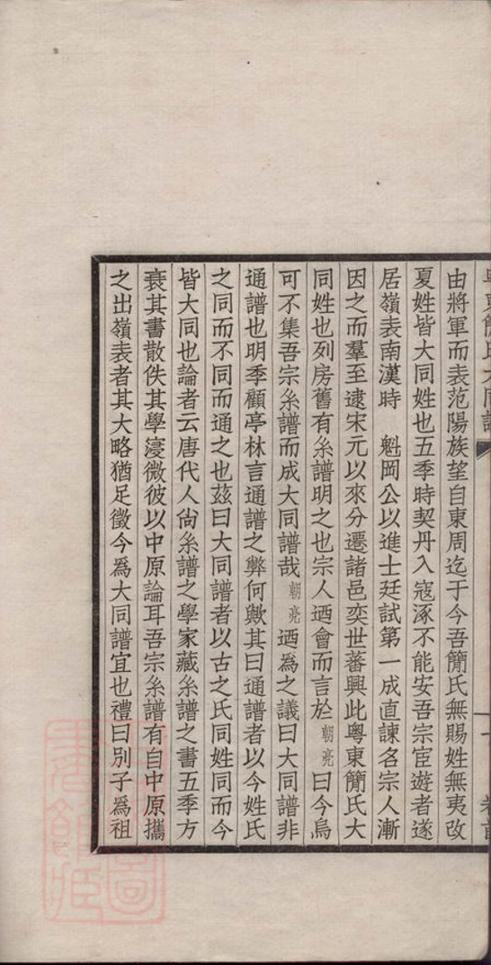 由將軍而表范陽族望自東周迄于今吾簡氏無賜姓無夷改
夏姓皆大同姓也五季時契丹入寇涿不能安吾宗宦遊者遂
居嶺表南漢時 魁岡公以進士廷試第一成直諫名宗人漸
因之而羣至逮宋元以來分遷諸邑奕世蕃興此粵東簡氏大
同姓也列房舊有糸譜明之也宗人迺會而言於朝亮曰今烏
可不集吾宗糸譜而成大同譜哉朝亮迺爲之議曰大同譜非
通譜也明季顧亭林言通譜之弊何歟其曰通譜者以今姓氏
之同而不同而通之也茲曰大同譜者以古之氏同姓同而今
皆大同也論者云唐代人尙糸譜之學家藏糸譜之書五季方
衰其書散佚其學寖微彼以中原論耳吾宗糸譜有自中原攜
之出嶺表者其大略猶足徵今爲大同譜宜也禮曰別子爲祖